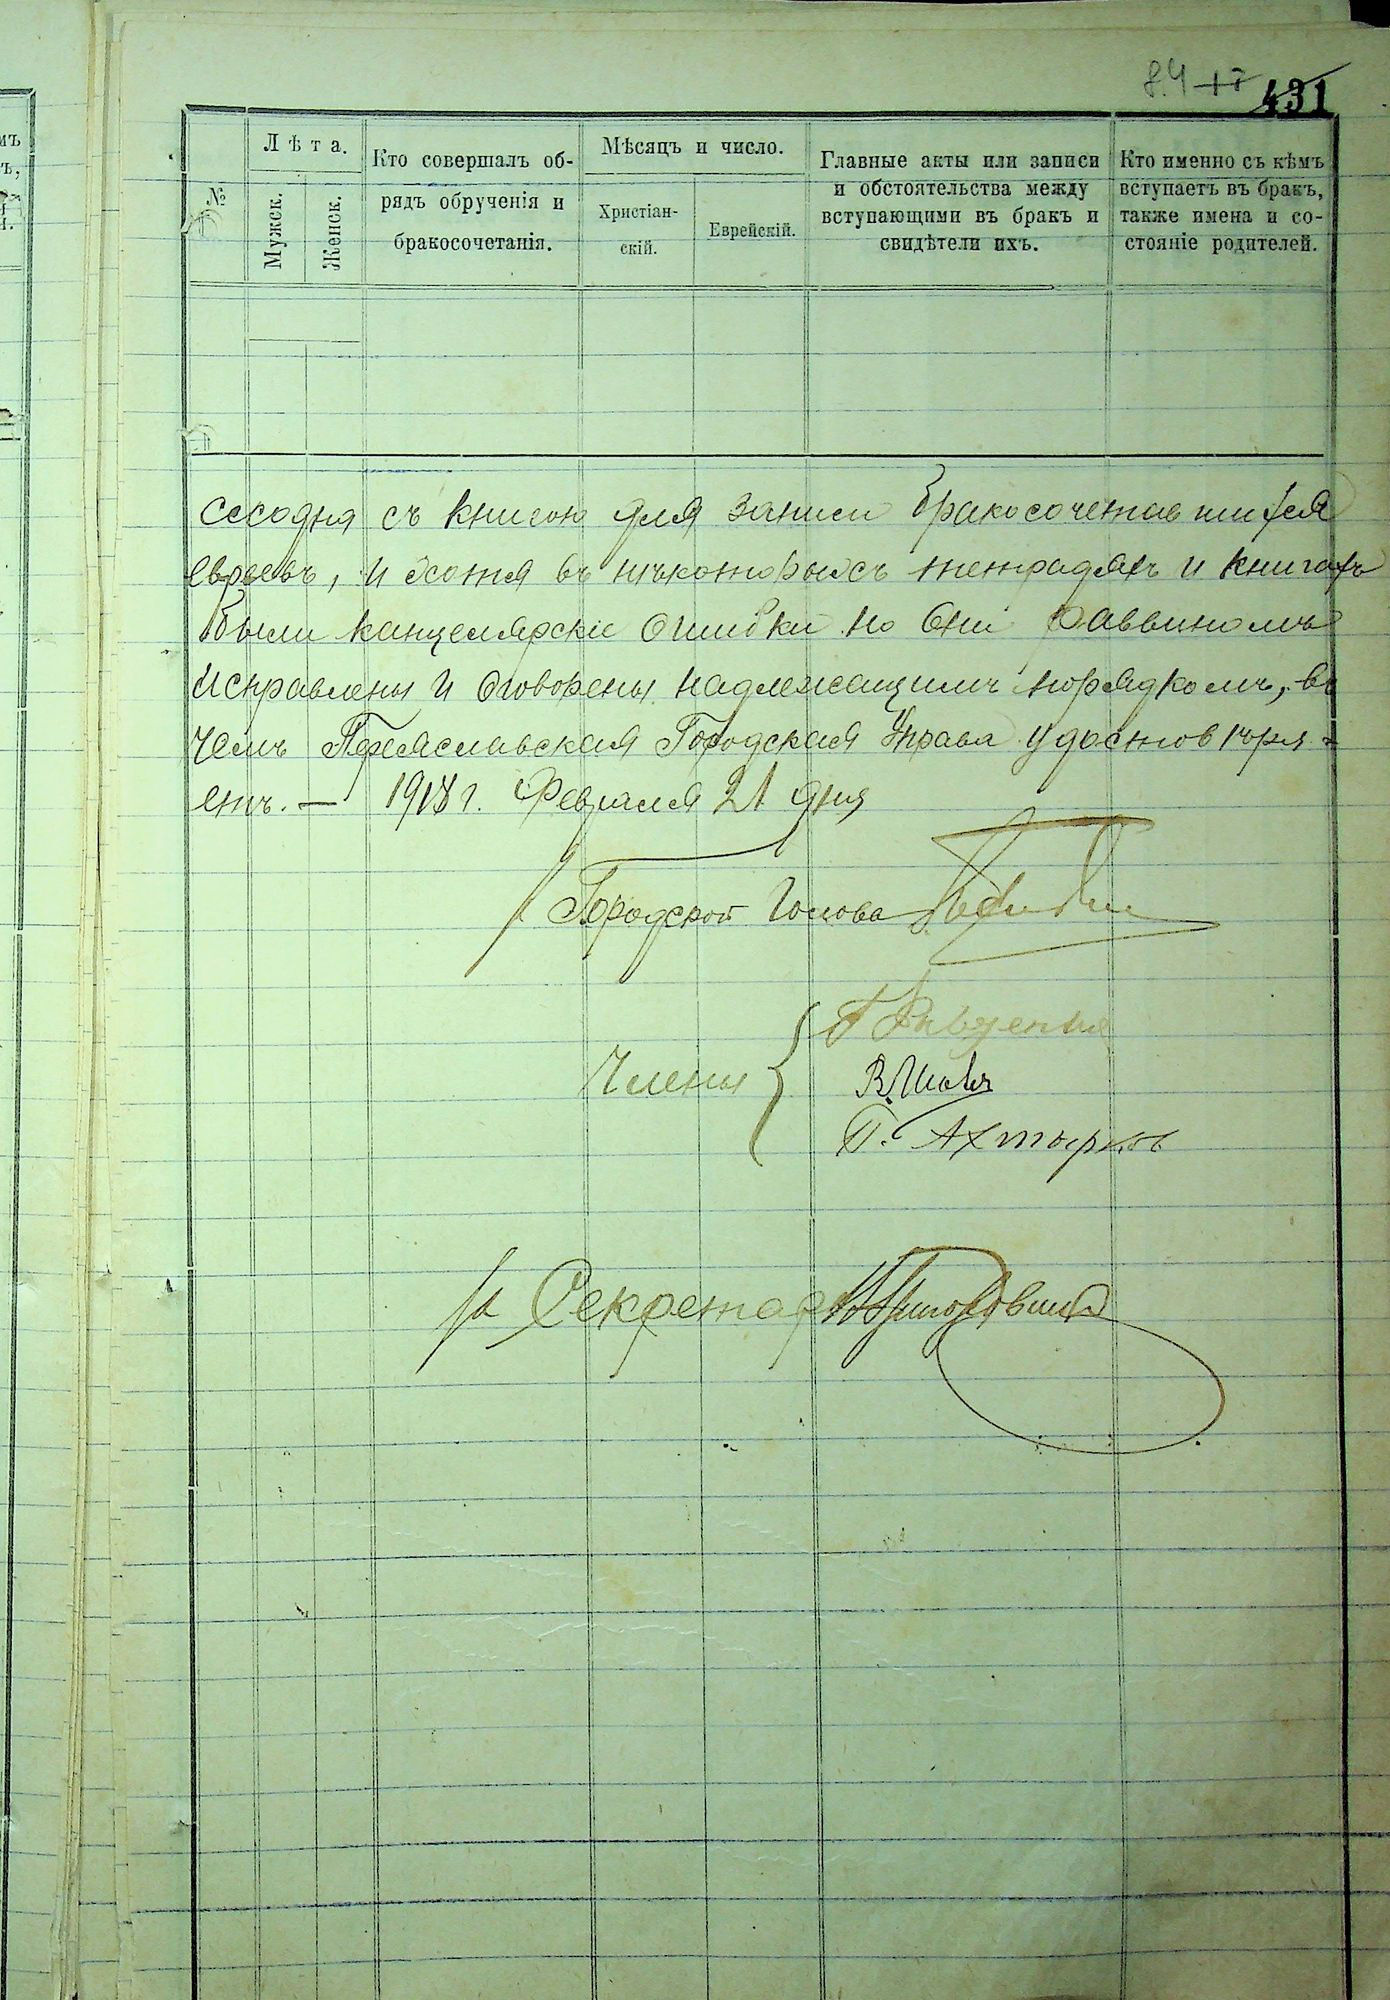 431
№
Лѣта.
Мужск.
Женск.
Кто совершалъ об-
рядъ обрученія и
бракосочетанія.
Мѣсяцъ и число.
Христіан-
скій.
Еврейскій.
Главные акты или записи
и обстоятельства между
вступающими въ бракъ и
свидѣтели ихъ.
Кто именно съ кѣмъ
вступаетъ въ бракъ,
также имена и со-
стояніе родителей.
съ книгою для записи бракосочетавшихся
евреевъ, и хотя въ нѣкоторыхъ тетрадяхъ и книгахъ
были канцелярскіе ошибки но они раввиномъ
исправлены и оговорены надлежащимъ порядкомъ, въ
чемъ Переяславская Городская Управа удостовѣря-
етъ. — 1918 г. Февраля 21 дня
Городской Голова
Члены
П. Ахтырковъ
Секретарь